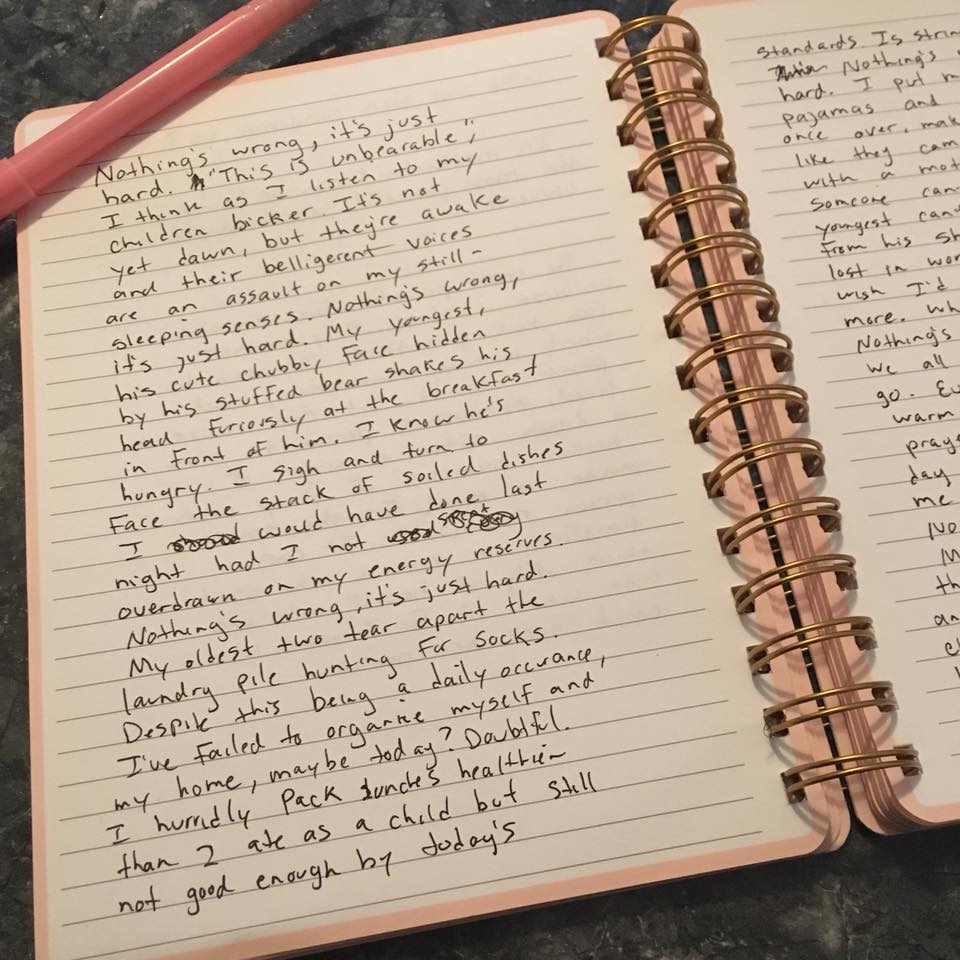 Nothing's wrong, it's just
hard. "This is unbearable",
I think as I listen to my
children bicker. It's not
yet dawn, but they're awake
and their belligerent voices
are an assault on my still-
sleeping senses. Nothing's wrong,
it's just hard. My youngest,
his cute chubby face hidden
by his stuffed bear shakes his
head furiously at the breakfast
in front of him. I know he's
hungry. I sigh and turn to
face the stack of soiled dishes
I would have done last
night had I not
overdrawn on my energy reserves.
Nothing's wrong, it's just hard.
My oldest two tear apart the
laundry pile hunting for socks.
Despite this being a daily occurance,
I've failed to organize myself and
my home, maybe today? Doubtful.
I hurridly pack lunches healthier
than I ate as a child but still
not good enough by today's
standards. Is
Nothing's
hard. I put
pajamas and
once over,
like they
with a
someone
youngest
from his
lost in
wish I'd
more.
Nothing's
we all
go.
warm
day
me